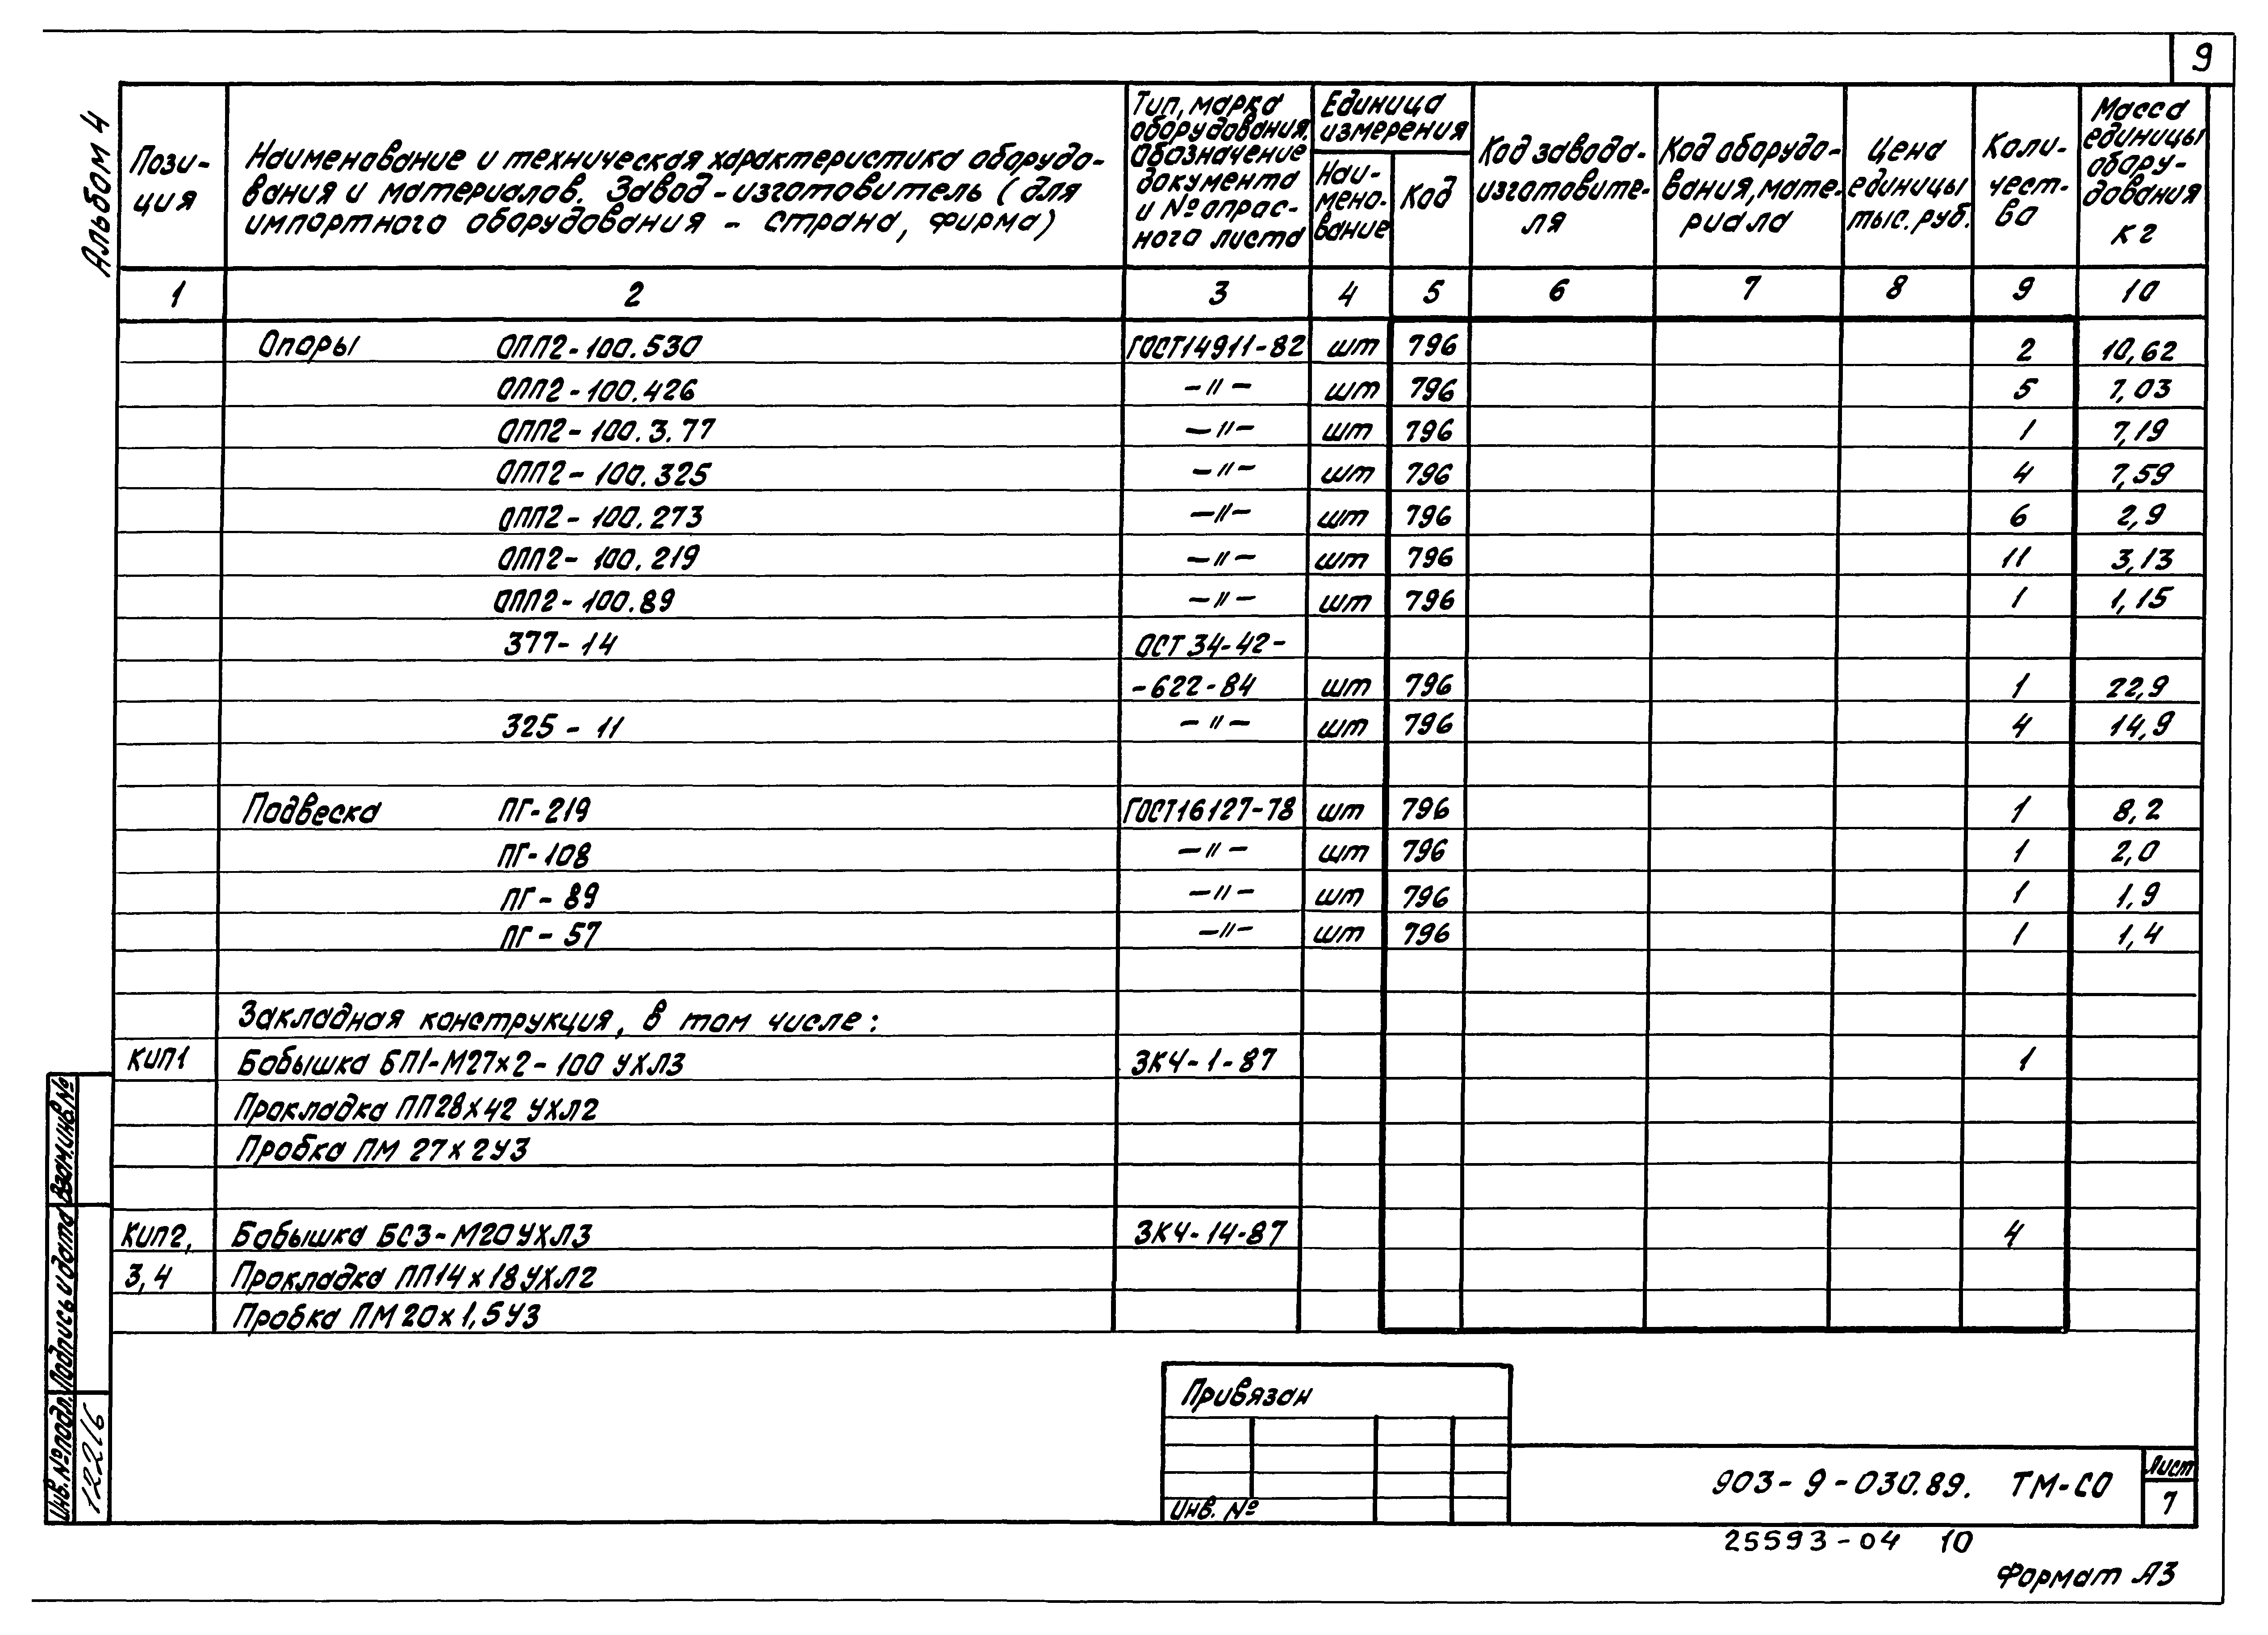 9
Альбом 4
Пози-
ция
Наименование и техническая характеристика оборудо-
вания и материалов. Завод-изготовитель (для
импортного оборудования - страна, фирма)
Тип, марка
оборудования.
Обозначение
документа
и № опрос-
ного листа
Единица
измерения
Наи-
мено-
вание
Код
Код завода-
изготовите-
ля
Код оборудо-
вания, мате-
риала
Цена
единицы
тыс. руб.
Коли-
чест-
во
Масса
единицы
обору-
дования
кг
1 2 3 4 5 6 7 8 9 10
Опоры ОПП2-100.530 ГОСТ14911-82 шт 796 2 10,62
ОПП2-100.426 -"- шт 796 5 7,03
ОПП2-100.3.77 -"- шт 796 1 7,19
ОПП2-100.325 -"- шт 796 4 7,59
ОПП2-100.273 -"- шт 796 6 2,9
ОПП2-100.219 -"- шт 796 11 3,13
ОПП2-100.89 -"- шт 796 1 1,15
377-14 ОСТ 34-42-
-622-84 шт 796 1 22,9
325-11 -"- шт 796 4 14,9
Подвеска ПГ-219 ГОСТ16127-78 шт 796 1 8,2
ПГ-108 -"- шт 796 1 2,0
ПГ-89 -"- шт 796 1 1,9
ПГ-57 -"- шт 796 1 1,4
Закладная конструкция, в том числе:
КИП1 Бобышка БП1-М27х2-100 УХЛ3 ЗК4-1-87 1
Прокладка ПП28х42 УХЛ2
Пробка ПМ 27х2У3
КИП2, Бобышка БС3-М20УХЛ3 ЗК4-14-87 4
3,4 Прокладка ПП14х18УХЛ2
Пробка ПМ20х1,5У3
Взам.инв.№
Подпись и дата
Инв.№ подл.
12216
Привязан
Инв. №
903-9-030.89. ТМ-СО
Лист
7
25593-04 10
Формат А3